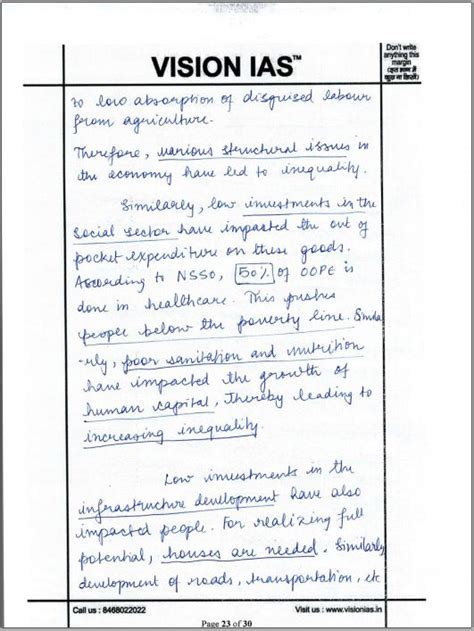 VISION IAS™
Don't write
anything this
margin
to low absorption of disguised labour
from agriculture.
Therefore, various structural issues in
the economy have led to inequality.
Similarly, low investments in the
social sector have impacted the out of
pocket expenditure on these goods.
According to NSSO, 50% of OOPE is
done in healthcare. This pushes
people below the poverty line. Simila
-rly, poor sanitation and nutrition
have impacted the growth of
human capital, thereby leading to
increasing inequality.
Low investments in the
infrastructure development have also
impacted people. For realizing full
potential, houses are needed. Similarly
development of roads, transportation, etc
Call us : 8468022022
Visit us : www.visionias.in
Page 23 of 30